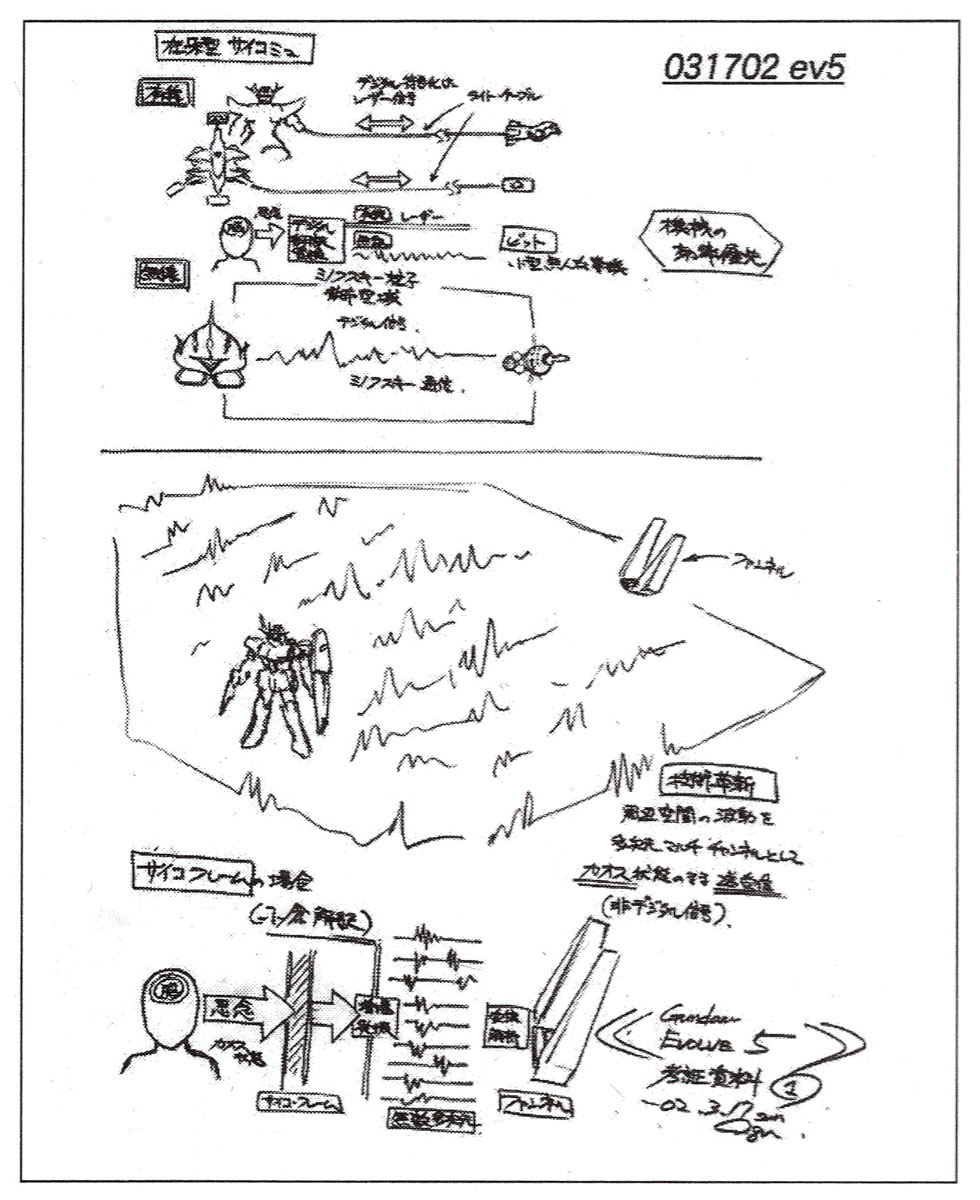 在来型 サイコミュ
031702 ev5
有線
デジタル符号化した
レーザー信号
ライト・ケーブル
脳
思念
デジタル
有線
レーザー
無線
ビット
小型無人攻撃機
無線
ミノフスキー粒子
デジタル信号
ミノフスキー通信
ファンネル
技術革新
周辺空間の波動を
多次元マルチチャンネルとして
カオス状態のまま送受信
(非デジタル信号)
サイコフレームの場合
脳
思念
カオス
状態
サイコ・フレーム
ファンネル
Gundam
EVOLVE 5
考証資料
1
-02.3.17